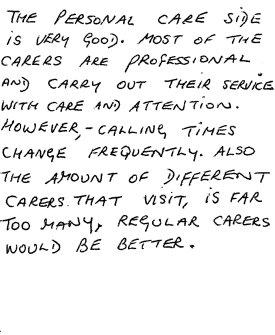 THE PERSONAL CARE SIDE
IS VERY GOOD. MOST OF THE
CARERS ARE PROFESSIONAL
AND CARRY OUT THEIR SERVICE
WITH CARE AND ATTENTION.
HOWEVER,-CALLING TIMES
CHANGE FREQUENTLY. ALSO
THE AMOUNT OF DIFFERENT
CARERS THAT VISIT, IS FAR
TOO MANY, REGULAR CARERS
WOULD BE BETTER.